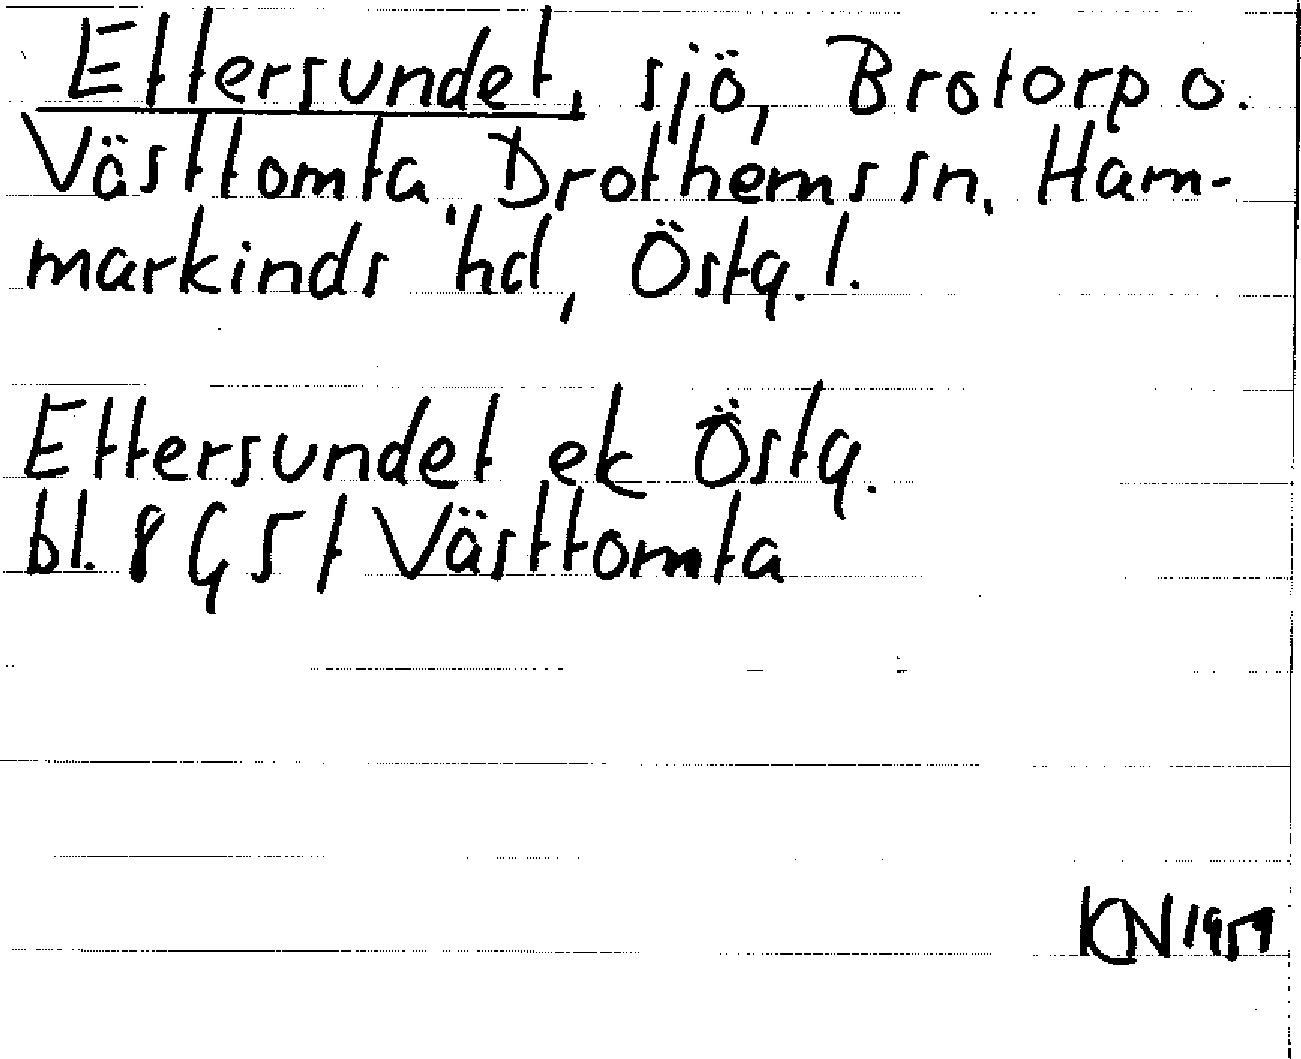 Ettersundet, sjö, Brotorp o.
Västtomta, Drothems sn, Ham-
markinds hd, Östg.l.
Ettersundet ek Östg.
bl. 8 G5f Västtomta
KN 1959